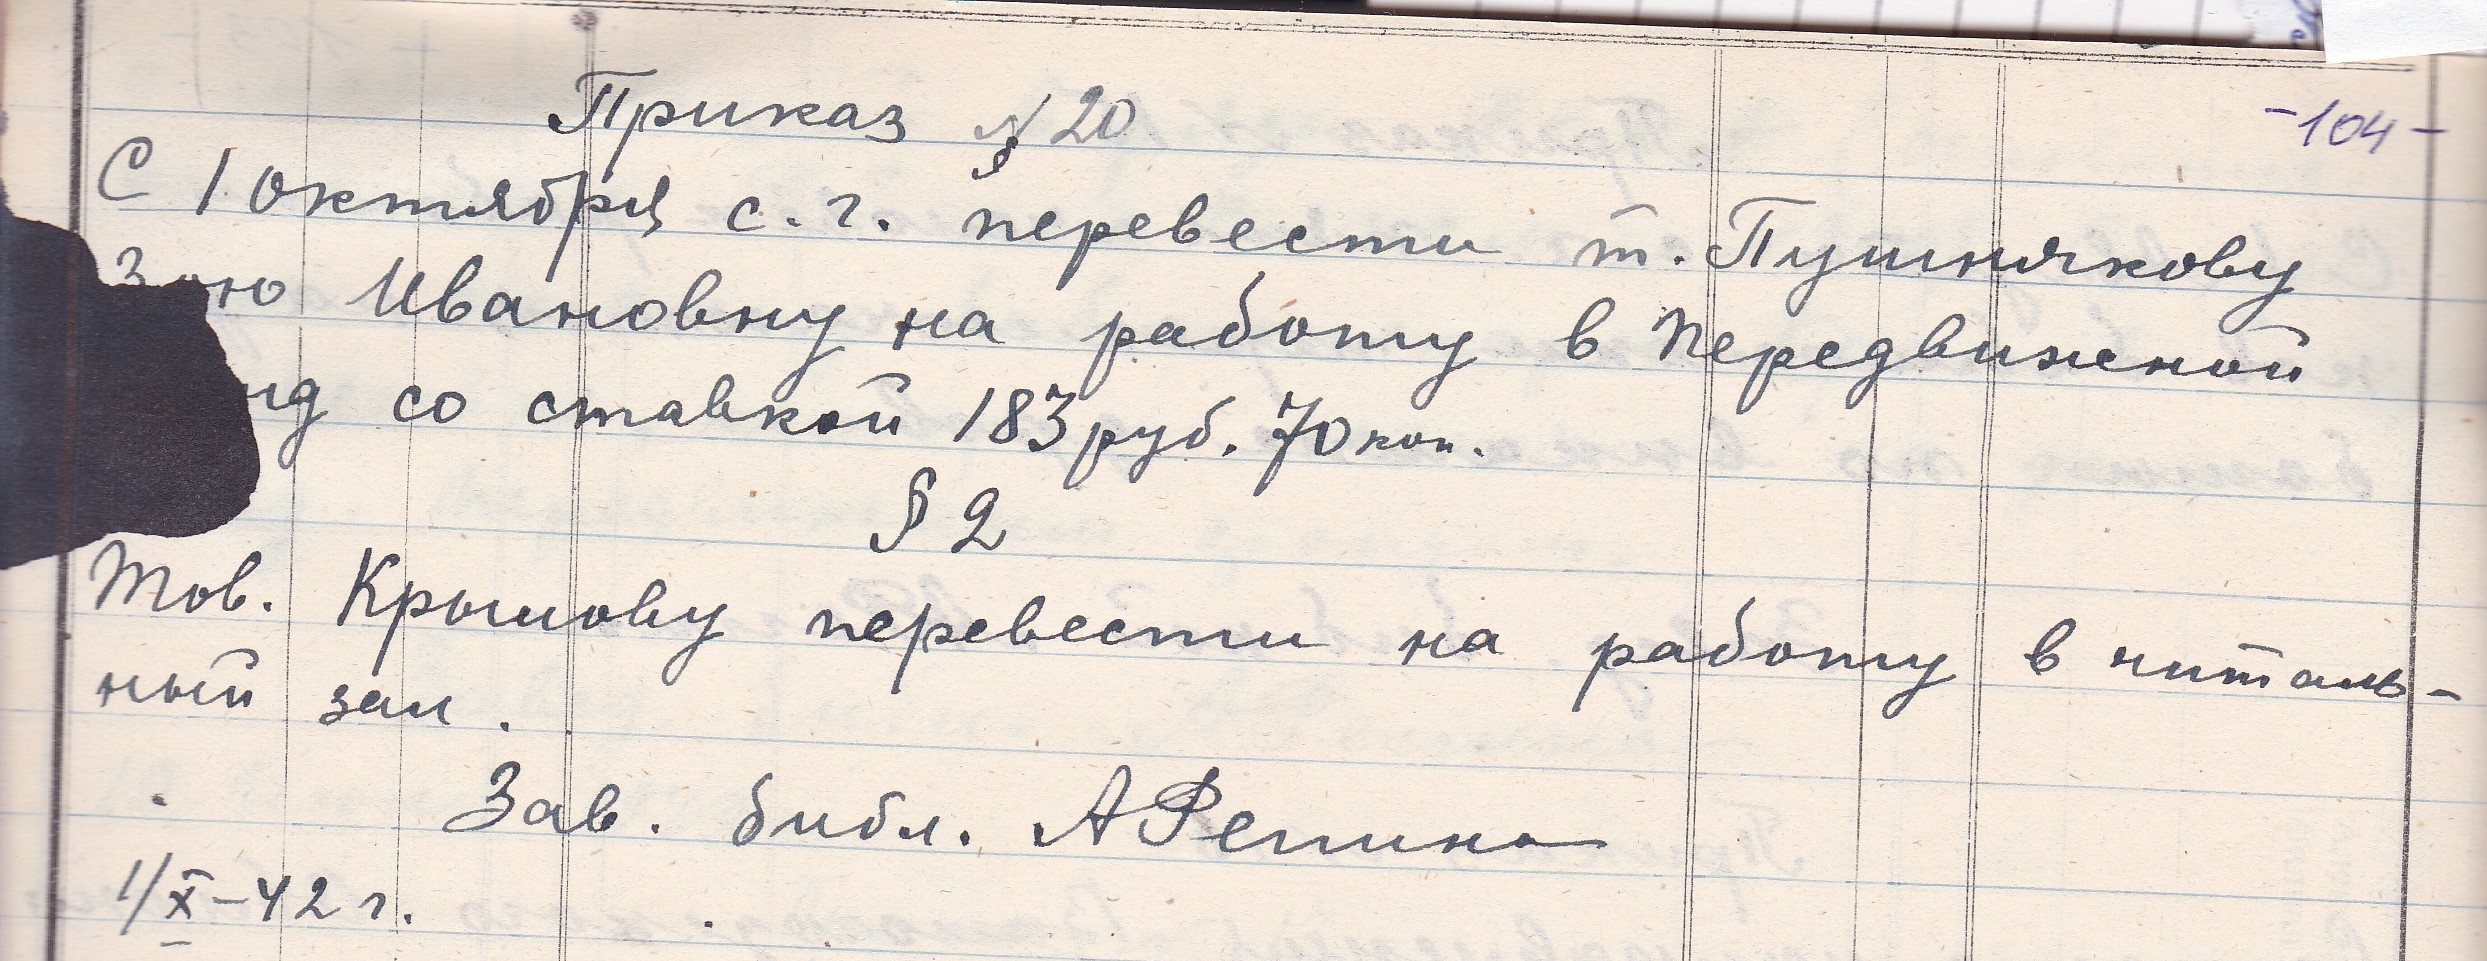 -104-
Приказ № 20
§
С 1 октября с. г. перевести т. Пушнякову
Зою Ивановну на работу в Передвижной
со ставкой 183 руб. 70 коп.
§ 2
Тов. Крылову перевести на работу в читаль-
ный зал.
Зав. библ. АРепина
1/X-42 г.